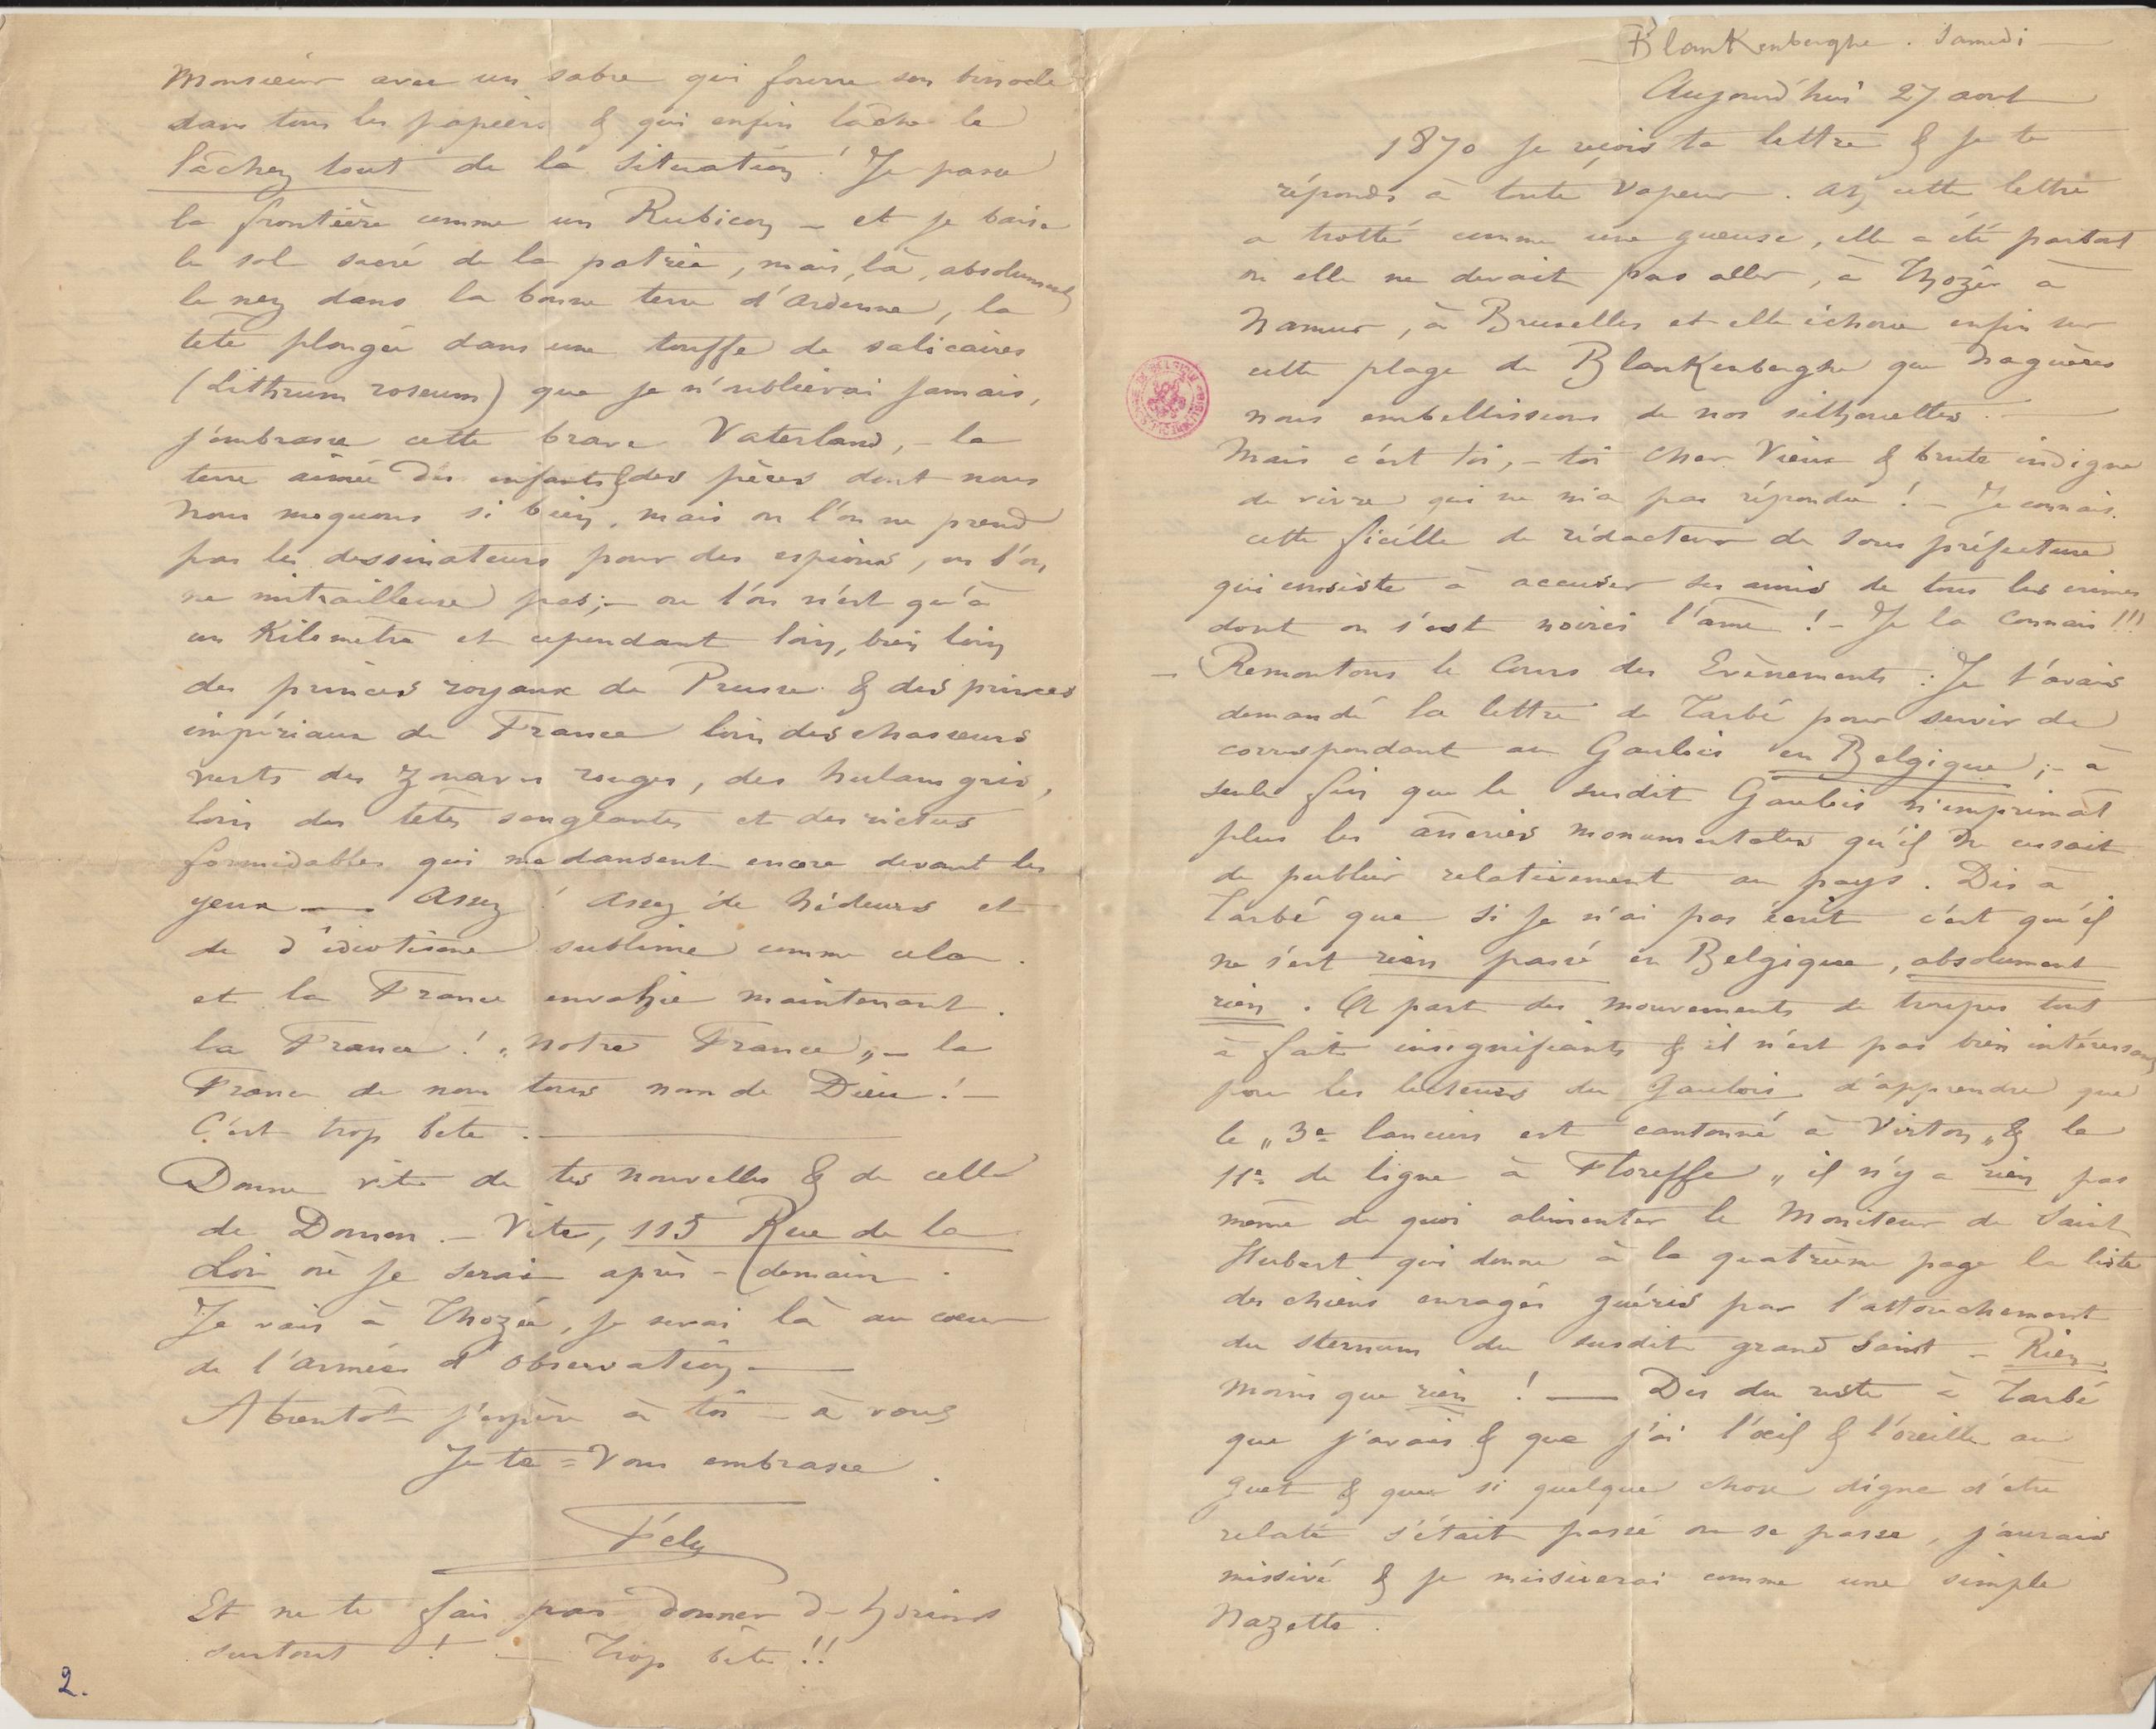 Blankenberghe. Samedi —
Aujourd'hui 27 aout
1870 je reçois ta lettre & je te
réponds à toute vapeur. Ah cette lettre
a trotté comme une gueuse, elle a été partout
où elle ne devait pas aller, à Thozée à
Namur, à Bruxelles et elle échoue enfin sur
cette plage de Blankenberghe que naguères
nous embellissions de nos silhouettes. —
Mais c'est toi, – toi cher Vieux & brute indigne
de vivre qui ne m'a pas répondu ! – Je connais.
cette ficelle de rédacteur de sous préfecture
qui consiste à accuser ses amis de tous les crimes
dont on s'est noirci l'âme ! – Je la connais !!!
— Remontons le Cours des Evènements : Je t'avais
demandé la lettre de Tarbé pour servir de
correspondant au Gaulois en Belgique ; – à
seule fin que le susdit Gaulois n'imprimât
plus les âneries monumentales qu'il ne cessait
de publier relativement au pays. Dis à
Tarbé que si je n'ai pas écrit c'est qu'il
ne s'est rien passé en Belgique, absolument
rien. A part des mouvements de troupes tout
à fait insignifiants & il n'est pas bien intéressant
pour les lecteurs du Gaulois d'apprendre que
le „ 3e lanciers est cantonné à Virton „ & le
11e de ligne à Floreffe „ il n'y a rien pas
même de quoi alimenter le Moniteur de Saint
Hubert qui donne à la quatrième page la liste
des chiens enragés guéris par l'attouchement
du sternum du susdit grand Saint – Rien
moins que rien ! — Dis du reste à Tarbé
que j'avais & que j'ai l'œil & l'oreille au
guet & que si quelque chose digne d'être
relaté s'était passé ou se passe, j'aurais
missivé & je missiverai comme une simple
Nazette.
Monsieur avec un sabre qui fourre son binocle
dans tous les papiers & qui enfin lâche le
lâchez tout de la situation ! Je passe
la frontière comme un Rubicon – et je baise
le sol sacré de la patrie, mais, là, absolument
le nez dans la bonne terre d'Ardenne, la
tête plongée dans une touffe de salicaires
(Lithrum roseum) que je n'oublierai jamais,
j'embrasse cette brave Vaterland, – la
terre aimée des enfants & des pères dont nous
nous moquons si bien, mais ou l'on ne prend
pas les dessinateurs pour des espions, ou l'on
ne mitrailleuse pas ; – ou l'on n'est qu'à
un Kilomètre et cependant loin, bien loin
des princes royaux de Prusse & des princes
impériaux de France loin des chasseurs
verts des zouaves rouges, des hulans gris,
loin des têtes sanglantes et des rictus
formidables qui me dansent encore devant les
yeux — Assez ! assez de hideurs et
de d'idiotisme sublime comme cela.
et la France envahie maintenant.
la France ! „ notre France „ – la
France de nous tous nom de Dieu ! –
C'est trop bête. —
Donne vite de tes nouvelles & de celles
de Dommartin. – Vite, 115 Rue de la
Loi où je serai après-demain.
Je vais à Thozée, je serai là au cœur
de l'armée d'Observation —
A bientôt j'espère à toi – à vous
Je te = Vous embrasse.
Fély
Et ne te fais pas donner d'horions
surtout ! — Trop bête !!
2.